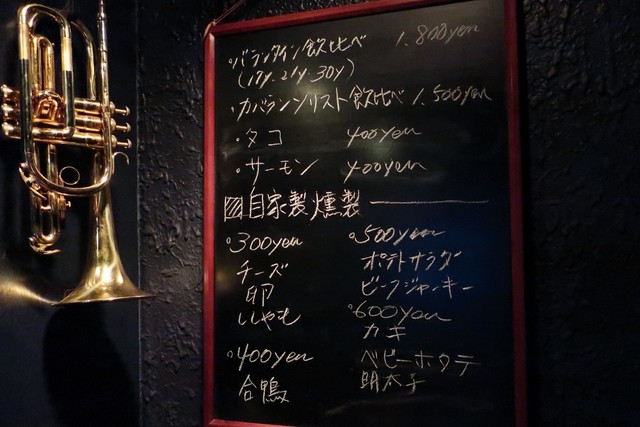 ・バランタイン飲比べ 1.800yen
(17y.21y.30y)
・カバランソリスト飲比べ 1.500yen
・タコ 400yen
・サーモン 400yen
自家製燻製
。300yen
チーズ
卵
ししゃも
。400yen
合鴨
。500yen
ポテトサラダ
ビーフジャーキー
。600yen
カキ
ベビーホタテ
明太子